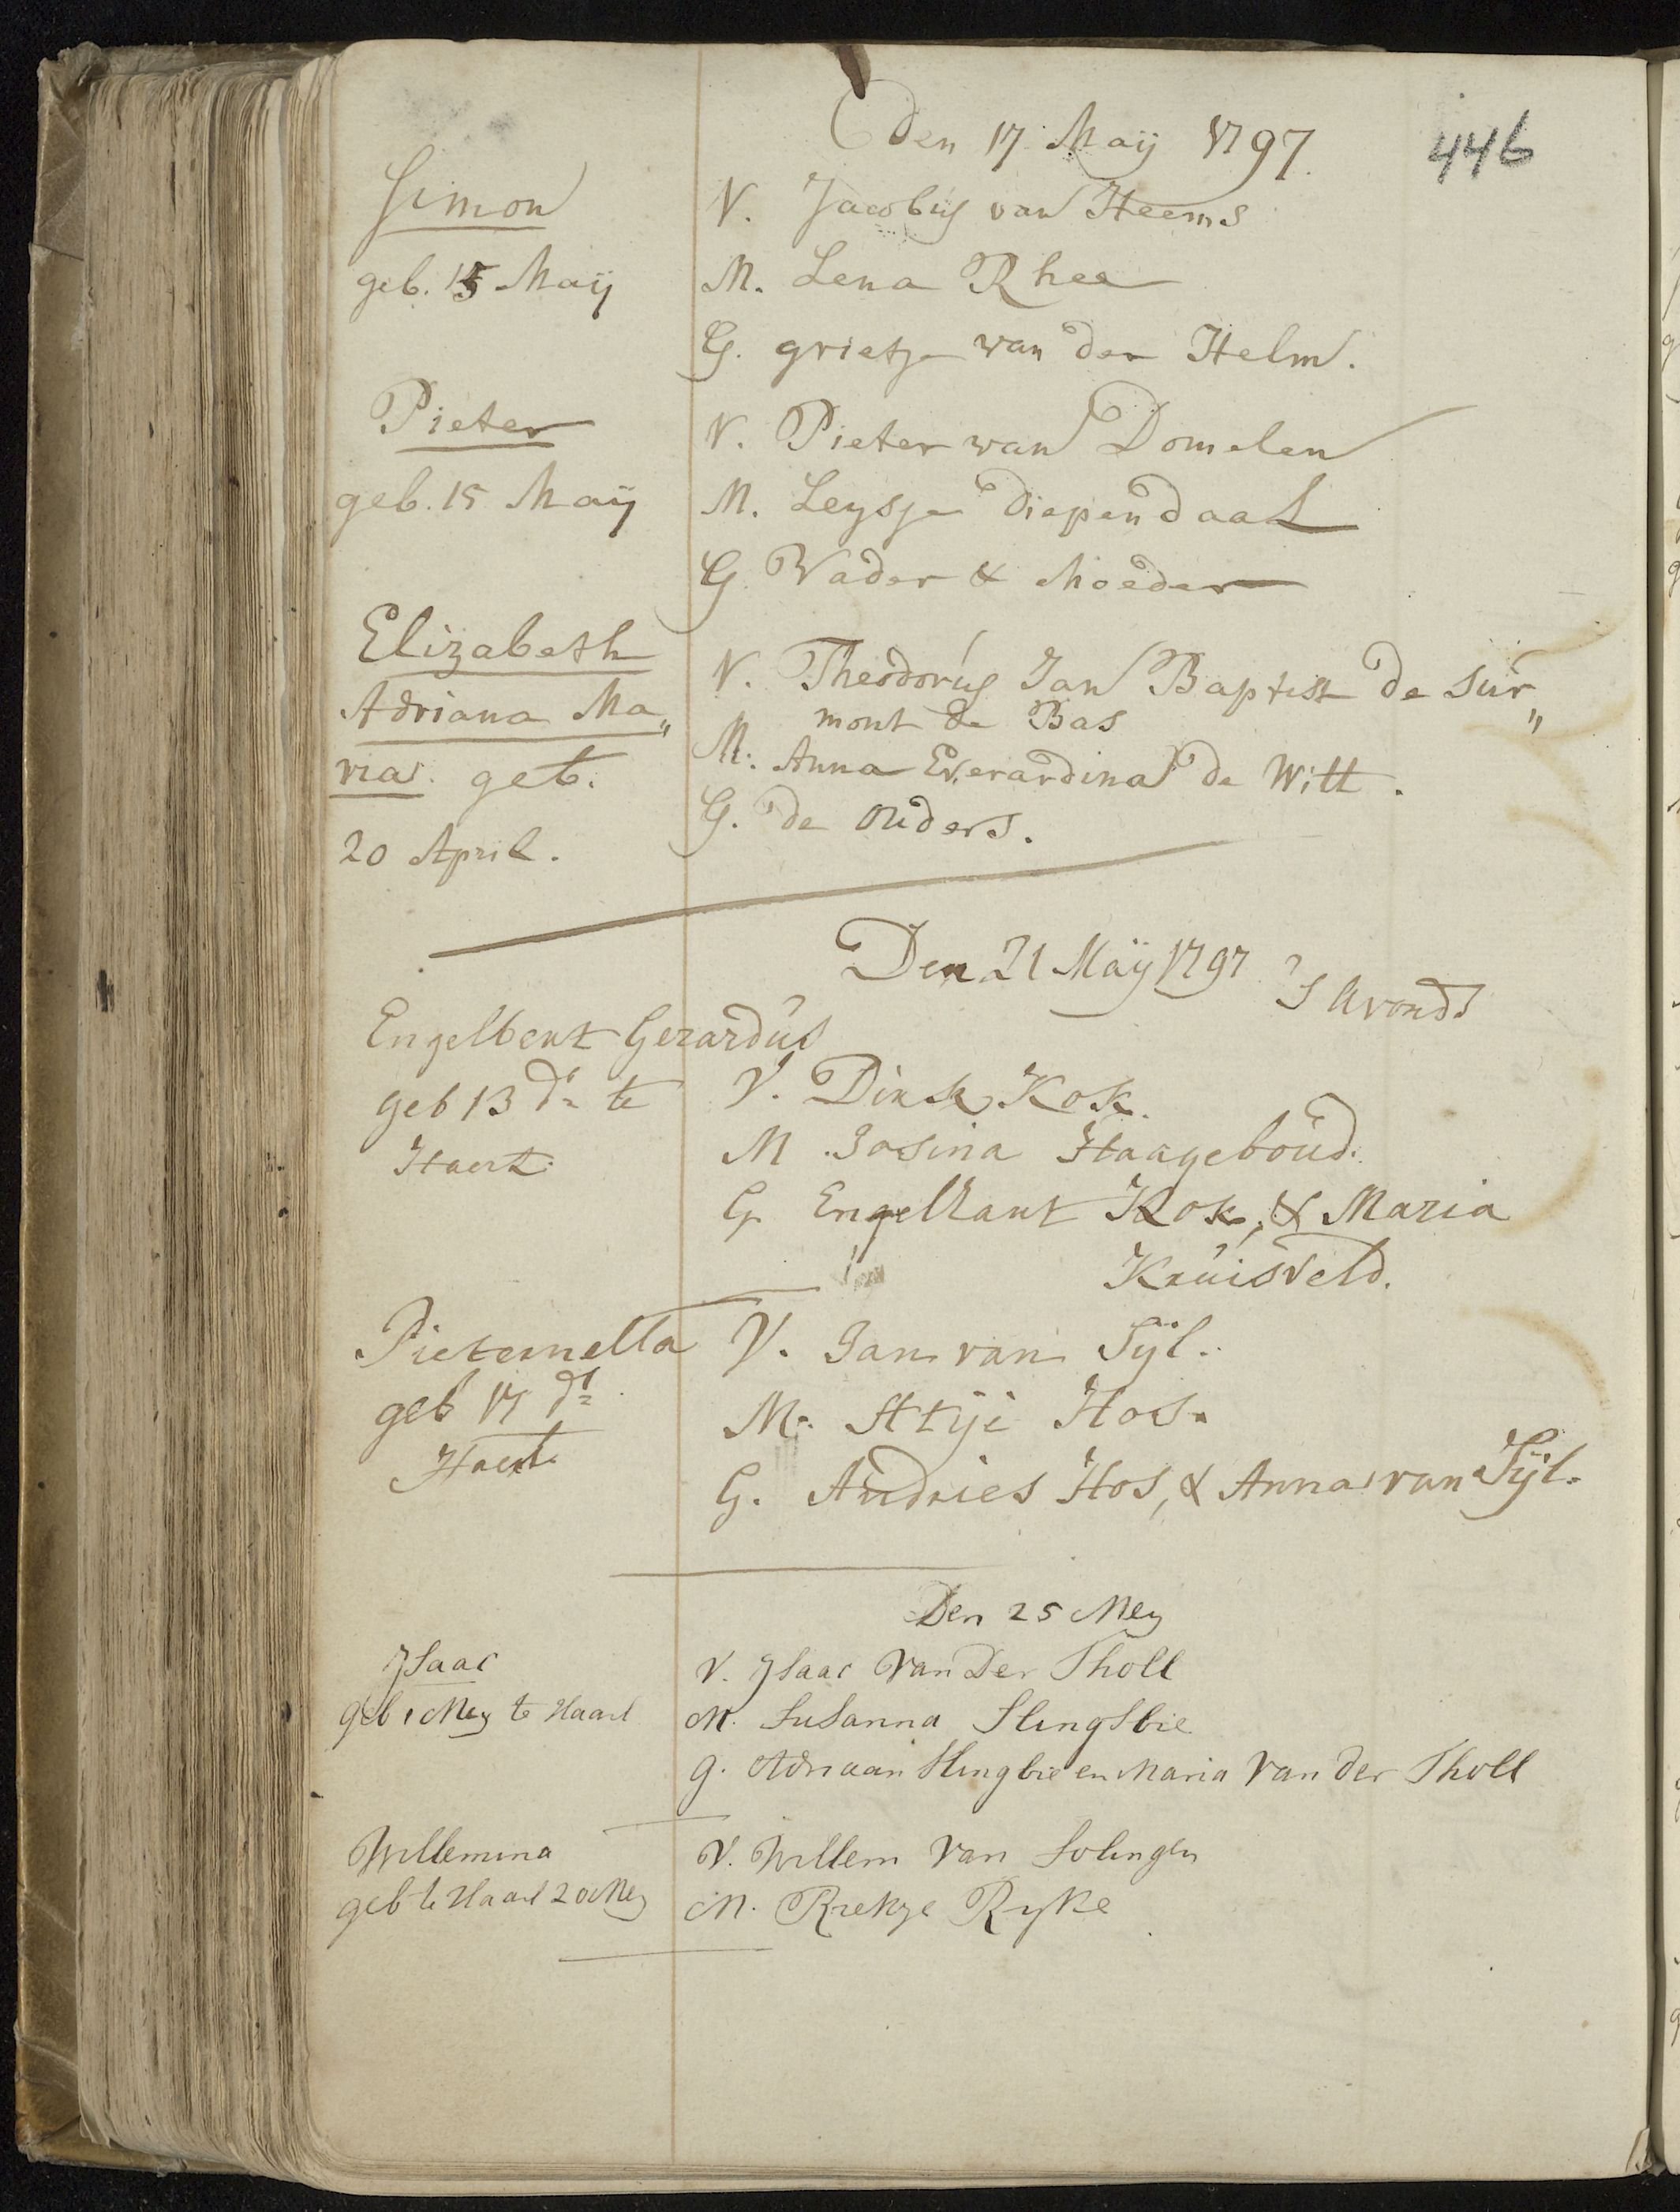 446
den 17 Maij 1797.
Simon
V. Jacobus van Heems
geb. 15 Maij
M. Lena Rhee
G. grietje van der Helm.
Pieter
V. Pieter van Domelen
geb. 15 Maij
M. Leysje Diependaal
G Vader & Moeder
Elizabeth
V. Theodorus Jan Baptist de Sur„
Adriana Ma„
mont de Bas
M. Anna Everardina de Witt.
ria. geb.
G. de ouders.
20 April.
Den 21 Maij 1797 S Avonds
Engelbert Gerardus
geb 13 do te
V. Dirk Kok.
Haerl.
M. Josina Haageboud.
G Engelbart Kok, & Maria
Kruisveld.
Pieternella
V. Jan van Tijl.
geb 17 do
M. Atije Hos.
Haerl.
G. Andries Hos, & Anna van Tijl.
Den 25 Mey
Jsaac
V. Jsaac Van Der Tholl
geb 1 Mey te Haarl
M. Susanna Slingsbie
g. Adriaan Slingbie en Maria Van der Tholl
Willemina
V. Willem Van Solingen
geb te Haarl 20 Mey
M. Riekje Ryke